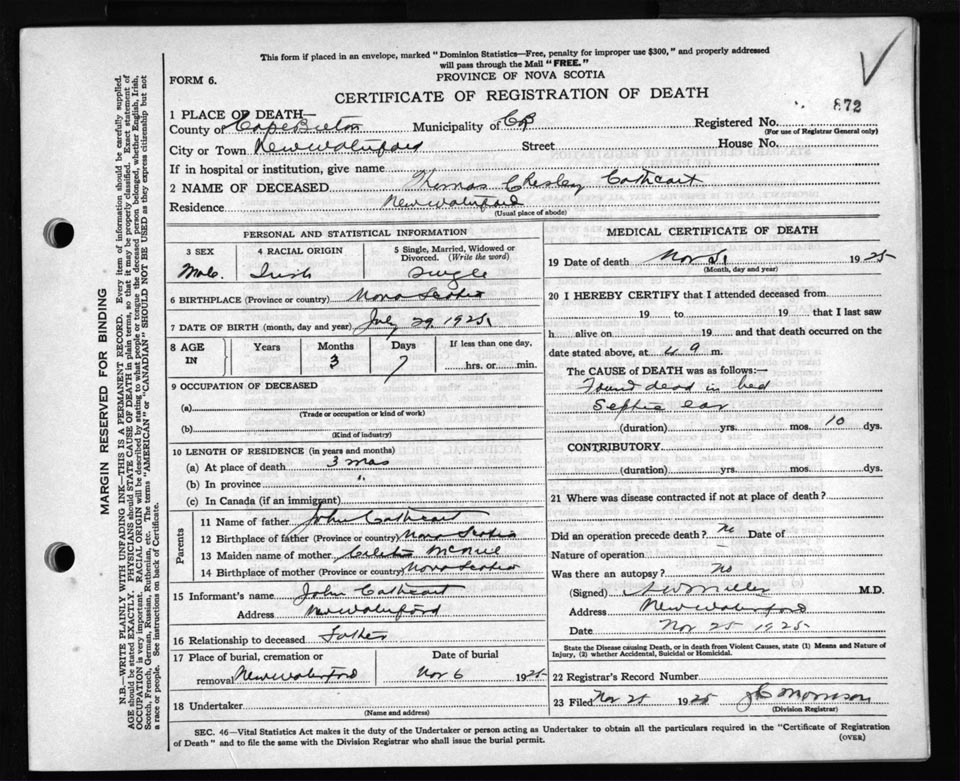 This form if placed in an envelope, marked "Dominion Statistics—Free, penalty for improper use $300," and properly addressed
will pass through the Mail "FREE."
FORM 6.
PROVINCE OF NOVA SCOTIA
CERTIFICATE OF REGISTRATION OF DEATH
872
1 PLACE OF DEATH—
County of Cape Breton Municipality of CB Registered No.
(For use of Registrar General only)
City or Town New Waterford Street House No.
If in hospital or institution, give name
2 NAME OF DECEASED Thomas Chesley Cathcart
Residence New Waterford
(Usual place of abode)
PERSONAL AND STATISTICAL INFORMATION
3 SEX 4 RACIAL ORIGIN 5 Single, Married, Widowed or Divorced. (Write the word)
Male Irish Single
6 BIRTHPLACE (Province or country) Nova Scotia
7 DATE OF BIRTH (month, day and year) July 29 1925
8 AGE IN Years Months Days If less than one day,
3 7 hrs. or min.
9 OCCUPATION OF DECEASED
(a)
(Trade or occupation or kind of work)
(b)
(Kind of industry)
10 LENGTH OF RESIDENCE (in years and months)
(a) At place of death 3 mos
(b) In province "
(c) In Canada (if an immigrant)
Parents
11 Name of father John Cathcart
12 Birthplace of father (Province or country) Nova Scotia
13 Maiden name of mother McNeil
14 Birthplace of mother (Province or country) Nova Scotia
15 Informant's name John Cathcart
Address New Waterford
16 Relationship to deceased Father
17 Place of burial, cremation or removal New Waterford
Date of burial
Nov 6 1925
18 Undertaker
(Name and address)
MEDICAL CERTIFICATE OF DEATH
19 Date of death Nov 5 1925
(Month, day and year)
20 I HEREBY CERTIFY that I attended deceased from
19 to 19 that I last saw
h alive on 19 and that death occurred on the
date stated above, at 9 m.
The CAUSE of DEATH was as follows:—
Found dead in bed
Septic ear
(duration) yrs. mos. 10 dys.
CONTRIBUTORY
(duration) yrs. mos. dys.
21 Where was disease contracted if not at place of death?
Did an operation precede death? No Date of
Nature of operation —
Was there an autopsy? No
(Signed) Miller M.D.
Address New Waterford
Date Nov 25 1925
State the Disease causing Death, or in death from Violent Causes, state (1) Means and Nature of
Injury, (2) whether Accidental, Suicidal or Homicidal.
22 Registrar's Record Number
23 Filed Nov 25 1925 Morrison
(Division Registrar)
SEC. 46—Vital Statistics Act makes it the duty of the Undertaker or person acting as Undertaker to obtain all the particulars required in the "Certificate of Registration
of Death" and to file the same with the Division Registrar who shall issue the burial permit.
(OVER)
MARGIN RESERVED FOR BINDING
N.B.—WRITE PLAINLY WITH UNFADING INK—THIS IS A PERMANENT RECORD. Every item of information should be carefully supplied.
AGE should be stated EXACTLY. PHYSICIANS should STATE CAUSE OF DEATH in plain terms, so that it may be properly classified. Exact statement of
OCCUPATION is very important. RACIAL ORIGIN will be described by stating to what people or tongue the deceased person belonged, whether English, Irish,
Scotch, French, German, Russian, Ruthenian, etc. The terms "AMERICAN" or "CANADIAN" SHOULD NOT BE USED as they express citizenship but not
a race or people. See instructions on back of Certificate.